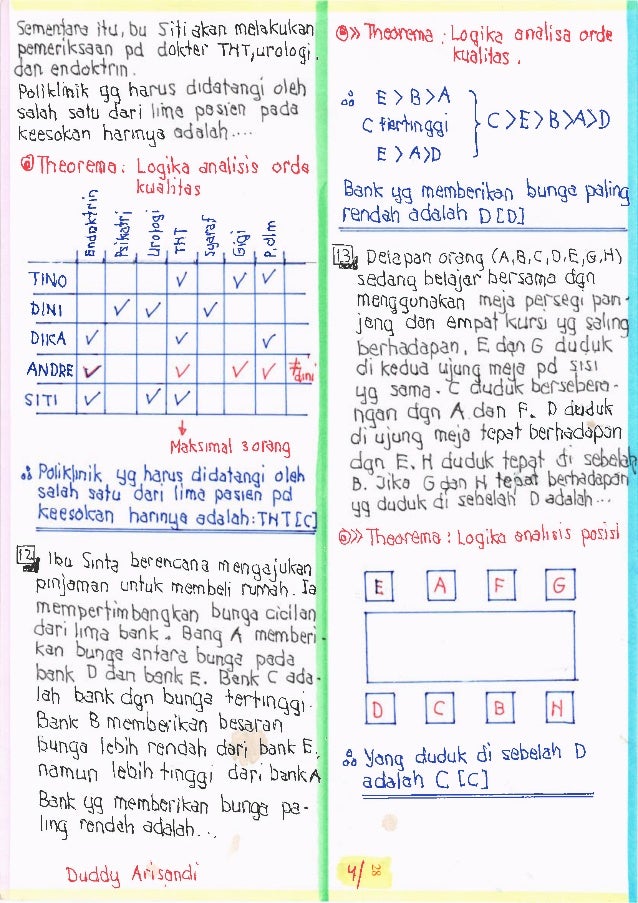 Sementara itu, bu Siti akan melakukan
pemeriksaan pd dokter THT, urologi,
dan endoktrin.
Poliklinik yg harus didatangi oleh
salah satu dari lima pasien pada
keesokan harinya adalah....
@» Theorema: Logika analisis orde
kualitas
Endoktrin
Psikatri
Urologi
THT
Syaraf
Gigi
P. dlm
TINO ✓ ✓ ✓
DINI ✓ ✓ ✓
DIKA ✓ ✓ ✓
ANDRE ✓ ✓ ✓ ✓ ≠ dini
SITI ✓ ✓ ✓
↓
Maksimal 3 orang
∴ Poliklinik yg harus didatangi oleh
salah satu dari lima pasien pd
keesokan harinya adalah: THT [C]
12, Ibu Sinta berencana mengajukan
pinjaman untuk membeli rumah. Ia
mempertimbangkan bunga cicilan
dari lima bank. Bang A memberi-
kan bunga antara bunga pada
bank D dan bank E. Bank C ada-
lah bank dgn bunga tertinggi.
Bank B memberikan besaran
bunga lebih rendah dari bank E,
namun lebih tinggi dari bank A
Bank yg memberikan bunga pa-
ling rendah adalah...
Duddy Arisandi
@» Theorema : Logika analisa orde
kualitas.
∴ E > B > A
C tertinggi
E > A > D
C > E > B > A > D
Bank yg memberikan bunga paling
rendah adalah D [D]
13, Delapan orang (A,B,C,D,E,G,H)
sedang belajar bersama dgn
menggunakan meja persegi pan-
jang dan empat kursi yg saling
berhadapan, E dan G duduk
di kedua ujung meja pd sisi
yg sama. C duduk bersebera-
ngan dgn A dan F. D duduk
di ujung meja tepat berhadapan
dgn E. H duduk tepat di sebelah
B. Jika G dan H tepat berhadapan
yg duduk di sebelah D adalah...
@» Theorema : Logika analisis posisi
E A F G
D C B H
∴ Yang duduk di sebelah D
adalah C [C]
4/28